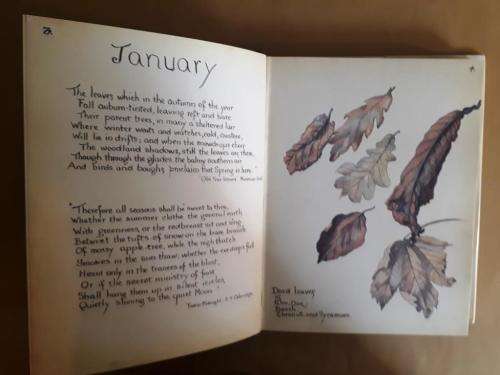 January
The leaves which in the autumn of the year
Fall auburn-tinted, leaving reft and bare
Their parent trees, in many a sheltered lair
Where winter waits and watches, cold, austere,
Will lie in drifts; and when the snowdrops cheer
The woodland shadows, still the leaves are there,
Though through the glades the balmy southern air
And birds and boughs proclaim that Spring is here.
"Therefore all seasons shall be sweet to thee,
Whether the summer clothe the general earth
With greenness, or the redbreast sit and sing
Betwixt the tufts of snow on the bare branch
Of mossy apple-tree, while the nigh thatch
Smokes in the sun thaw; whether the eve-drops fall
Heard only in the trances of the blast,
Or if the secret ministry of frost
Shall hang them up in silent icicles,
Quietly shining to the quiet Moon."
Dead leaves
of
Oak
Beech
and Sycamore